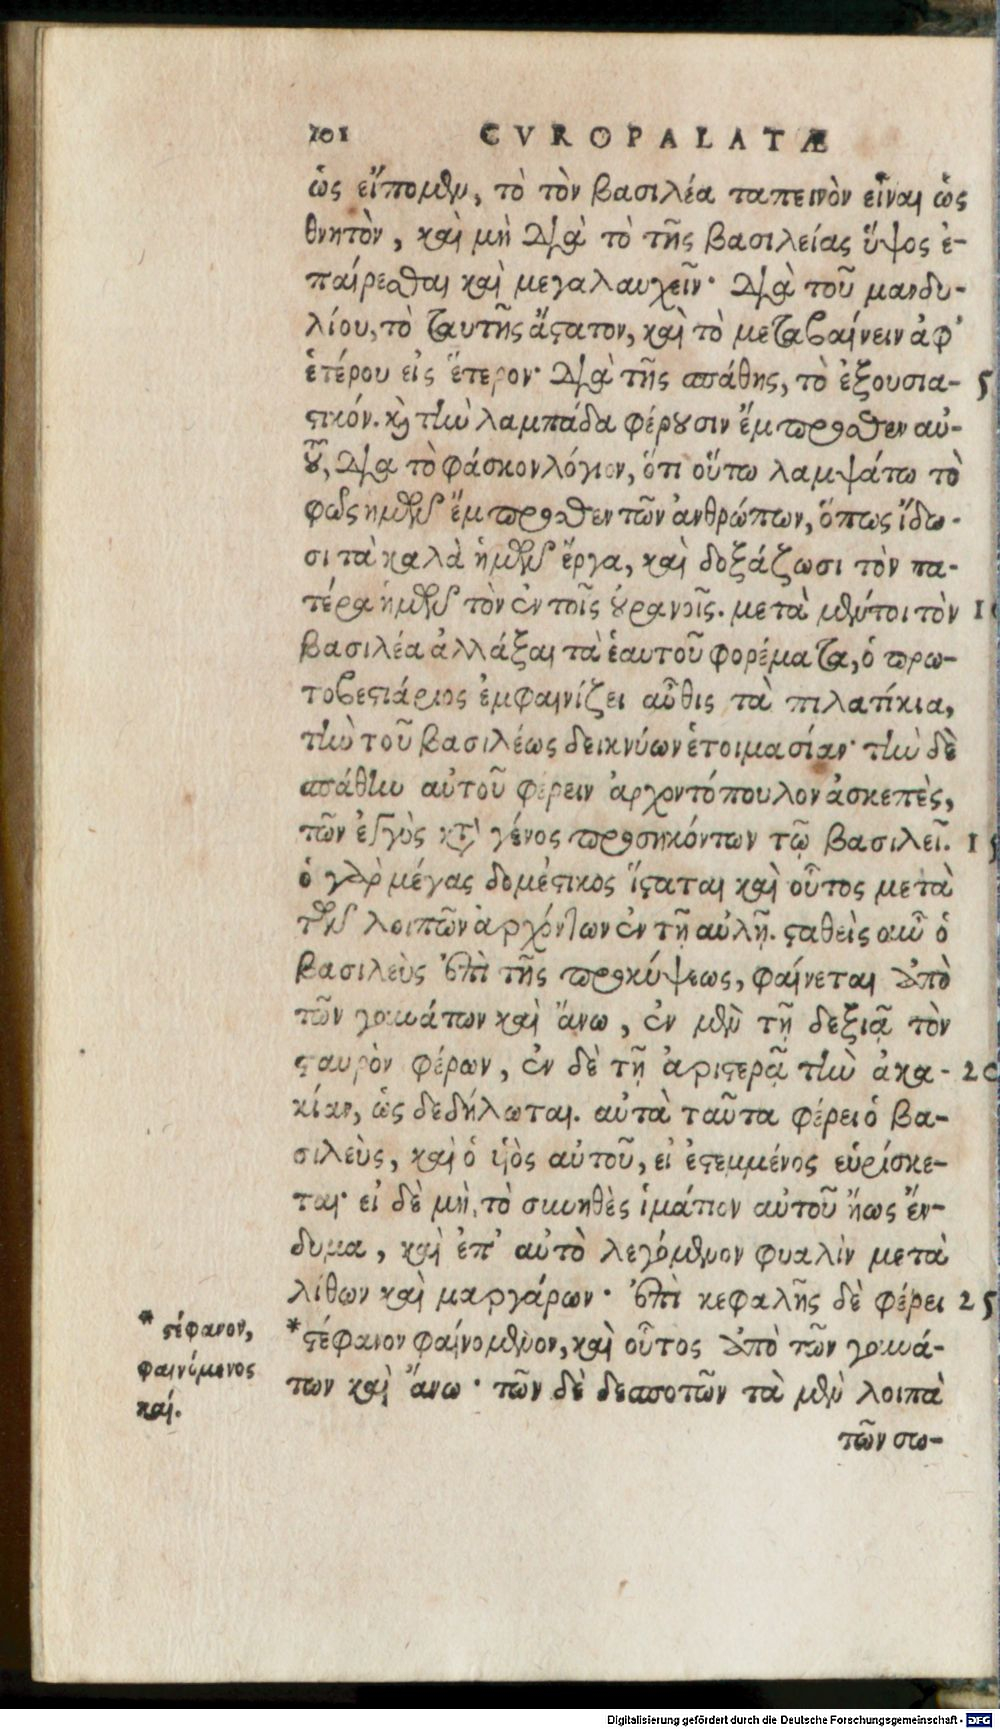 101 CVROPALATÆ
ὡς εἴπομεν, τὸ τὸν βασιλέα ταπεινὸν εἶναι ὡς
θνητὸν, καὶ μὴ διὰ τὸ τῆς βασιλείας ὕψος ἐ-
παίρεσθαι καὶ μεγαλαυχεῖν· διὰ τοῦ μανδυ-
λίου, τὸ ταυτῆς ἄστατον, καὶ τὸ μεταβαίνειν ἀφ’
ἑτέρου εἰς ἕτερον· διὰ τῆς σπάθης, τὸ ἐξουσια- 5
στικόν. καὶ τὴν λαμπάδα φέρουσιν ἔμπροσθεν αὐ-
τοῦ, διὰ τὸ φάσκον λόγιον, ὅτι οὕτω λαμψάτω τὸ
φῶς ἡμῶν ἔμπροσθεν τῶν ἀνθρώπων, ὅπως ἴδω-
σι τὰ καλὰ ἡμῶν ἔργα, καὶ δοξάζωσι τὸν πα-
τέρα ἡμῶν τὸν ἐν τοῖς οὐρανοῖς. μετὰ μέντοι τὸν 10
βασιλέα ἀλλάξαι τὰ ἑαυτοῦ φορέματα, ὁ πρω-
τοβεστιάριος ἐμφαινίζει αὖθις τὰ πιλατίκια,
τὴν τοῦ βασιλέως δεικνύων ἑτοιμασίαν· τὴν δὲ
σπάθην αὐτοῦ φέρειν ἀρχοντόπουλον ἀσκεπὲς,
τῶν ἐγγὺς κατὰ γένος προσηκόντων τῷ βασιλεῖ. 15
ὁ γὰρ μέγας δομέστικος ἵσταται καὶ οὗτος μετὰ
τῶν λοιπῶν ἀρχόντων ἐν τῇ αὐλῇ. σταθεὶς οὖν ὁ
βασιλεὺς ἐπὶ τῆς προκύψεως, φαίνεται ἀπὸ
τῶν γονάτων καὶ ἄνω, ἐν μὲν τῇ δεξιᾷ τὸν
σταυρὸν φέρων, ἐν δὲ τῇ ἀριστερᾷ τὴν ἀκα- 20
κίαν, ὡς δεδήλωται. αὐτὰ ταῦτα φέρει ὁ βα-
σιλεὺς, καὶ ὁ υἱὸς αὐτοῦ, εἰ ἐστεμμένος εὑρίσκε-
ται· εἰ δὲ μὴ, τὸ συνηθὲς ἱμάτιον αὐτοῦ ἤως ἔν-
δυμα, καὶ ἐπ’ αὐτὸ λεγόμενον φυαλὶν μετὰ
λίθων καὶ μαργάρων· ἐπὶ κεφαλῆς δὲ φέρει 25
*στέφανον φαινόμενον, καὶ οὗτος ἀπὸ τῶν γονά-
των καὶ ἄνω· τῶν δὲ δεσποτῶν τὰ μὲν λοιπὰ
τῶν σω-
* στέφανον,
φαινόμενος
καί.
Digitalisierung gefördert durch die Deutsche Forschungsgemeinschaft - DFG